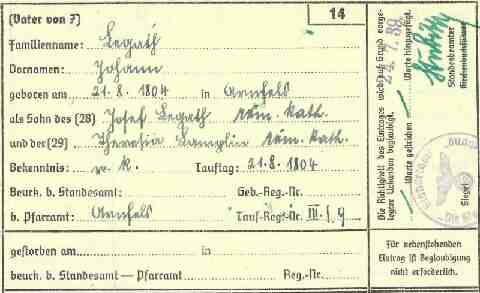 (Vater von 7)
14
Familienname: Legath
Vornamen: Johann
geboren am 21.8.1804 in Arnfels
als Sohn des (28) Josef Legath röm. kath.
und der (29) Theresia röm. kath.
Bekenntnis: r. k. Tauftag: 21.8.1804
Beurk. b. Standesamt: Geb.-Reg.-Nr.
b. Pfarramt: Arnfels Tauf-Regst.-Nr. III. / 9
gestorben am in
beurk. b. Standesamt — Pfarramt Reg.-Nr.
Die Richtigkeit des Eintrages wird auf Grund vorge-
legter Urkunden beglaubigt.
24.7.39
Worte gestrichen
Worte hinzugefügt.
Standesbeamter
Kirchenbuchführer
Siegel
Für nebenstehenden
Eintrag ist Beglaubigung
nicht erforderlich.